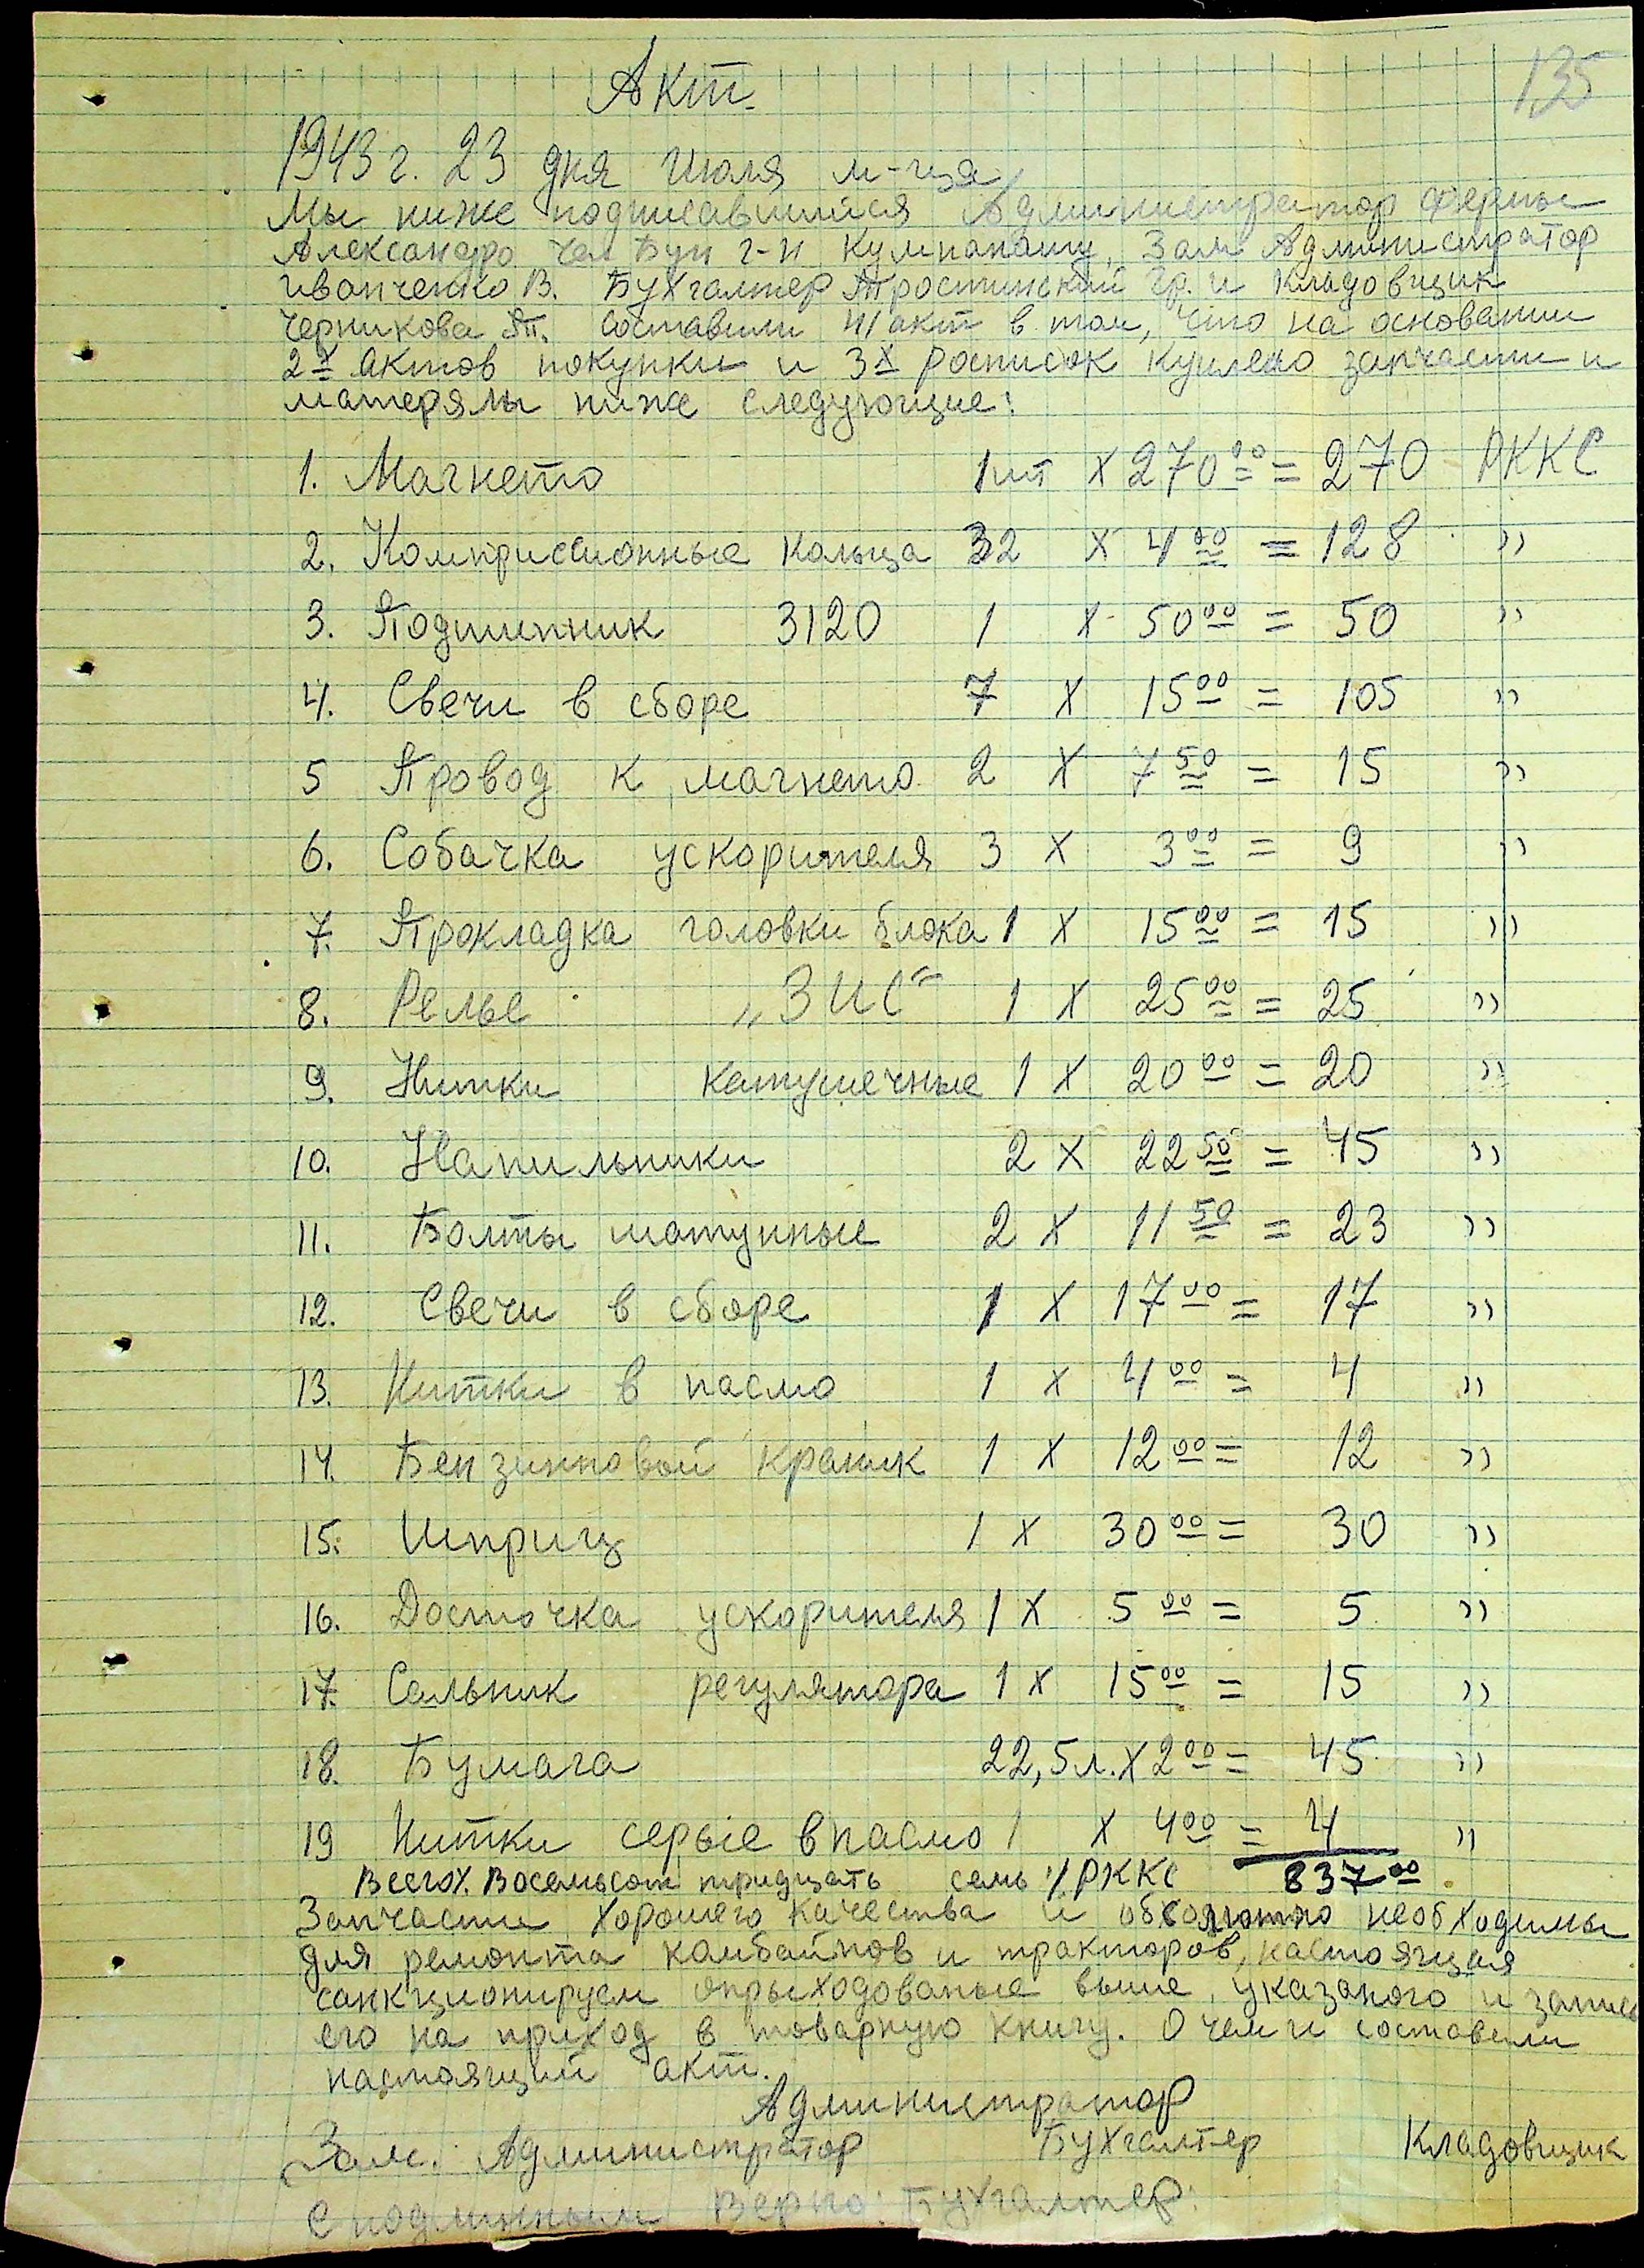 135
Акт.
1943 г. 23 дня Июля м-ца
Мы ниже подписавшийся Администратор Фермы
Александро чел Бун г-н Кумпанашу, Зам Администратор
Иванченко В. Бухгалтер Тростинский Гр. и Кладовщик
Черникова П. составили н/акт в том, что на основании
2х актов покупки и 3х росписок куплено запчасти и
матерялы ниже следующие:
1. Магнето 1шт х 270 00 = 270 РККС
2. Комприссионные кольца 32 х 4 00 = 128 "
3. Подшипник 3120 1 х 50 00 = 50 "
4. Свечи в сборе 7 х 15 00 = 105 "
5 Провод к магнето 2 х 7 50 = 15 "
6. Собачка ускорителя 3 х 3 00 = 9 "
7. Прокладка головки блока 1 х 15 00 = 15 "
8. Релье „ЗИС“ 1 х 25 00 = 25 "
9. Нитки катушечные 1 х 20 00 = 20 "
10. Напильники 2 х 22 50 = 45 "
11. Болты шатунные 2 х 11 50 = 23 "
12. Свечи в сборе 1 х 17 00 = 17 "
13. Нитки в пасмо 1 х 4 00 = 4 "
14. Бензинновой краник 1 х 12 00 = 12 "
15. Шприц 1 х 30 00 = 30 "
16. Досточка ускорителя 1 х 5 00 = 5 "
17. Сальник регулятора 1 х 15 00 = 15 "
18. Бумага 22,5 л. х 2 00 = 45 "
19 Нитки серые в пасмо 1 х 4 00 = 4 "
Всего %. Восемьсот тридцать семь % РККС 837 00
Запчасти хорошего качества и обсолютно необходимы
для ремонта комбайнов и тракторов, настоящия
санкционируем оприходованые выше указаного и запись
его на приход в товарную книгу. О чем и составили
настоящий акт.
Администратор
Зам. Администратор Бухгалтер Кладовщик
С подлинным Верно: Бухгалтер: